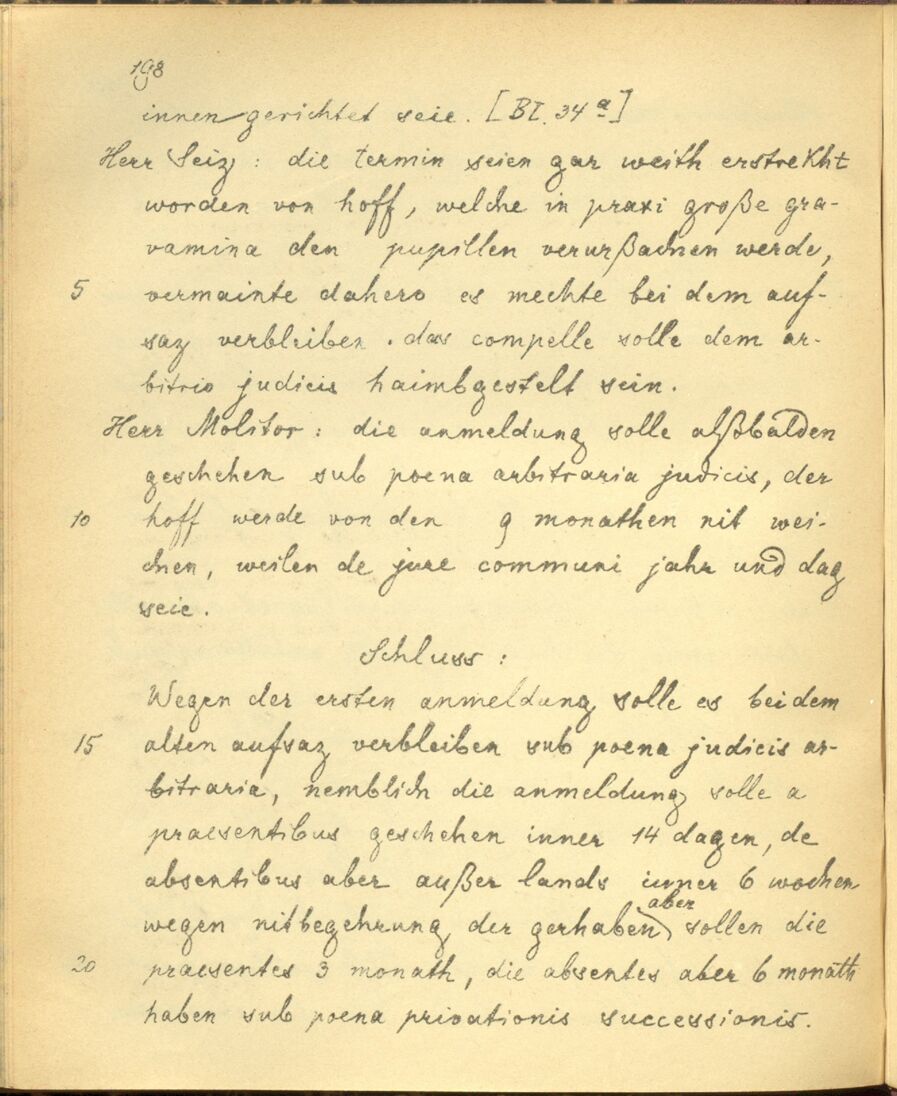 198
innen gerichtet seie. [Bl. 34 a]
Herr Seiz: die termin seien gar weith erstrekht
worden von hoff, welche in praxi große gra-
vamina den pupillen verurßachen werde,
5 vermainte dahero es mechte bei dem auf-
saz verbleiben. das compelle solle dem ar-
bitrio judicis haimbgestelt sein.
Herr Molitor: die anmeldung solle alßbalden
geschehen sub poena arbitraria judicis, der
10 hoff werde von den 9 monathen nit wei-
chen, weilen de jure communi jahr und dag
seie.
Schluss:
Wegen der ersten anmeldung solle es bei dem
15 alten aufsaz verbleiben sub poena judicis ar-
bitraria, nemblich die anmeldung solle a
praesentibus geschehen inner 14 dagen, de
absentibus aber außer lands inner 6 wochen
wegen nitbegehrung der gerhaben aber sollen die
20 praesentes 3 monath, die absentes aber 6 monath
haben sub poena privationis successionis.